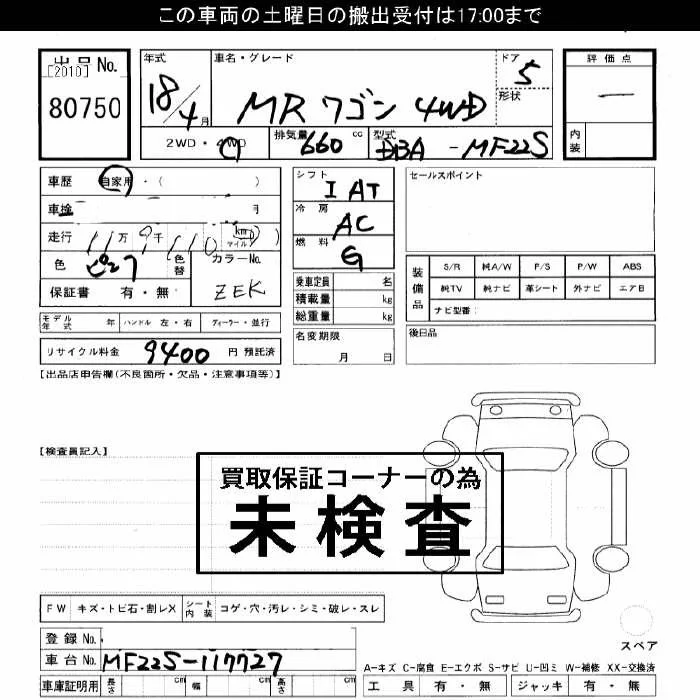 この車両の土曜日の搬出受付は17:00まで
出品 No.
[2010]
80750
年式
18/4月
車名・グレード
MR ワゴン 4WD
ドア
5
形状
評価点
—
内装
2WD・4WD
排気量
660 cc
型式
DBA - MF22S
車歴 自家用・( )
車検 月
走行 11万9千110 (km マイル)
色 ピンク
色替
カラーNo.
ZEK
保証書 有・無
シフト
I AT
冷房
AC
燃料
G
乗車定員 名
積載量 kg
総重量 kg
セールスポイント
装備品
S/R 純A/W P/S P/W ABS
純TV 純ナビ 革シート 外ナビ エアB
ナビ型番:
モデル年式 年 ハンドル 左・右 ディーラー・並行
名変期限
月 日
後日品
リサイクル料金 9400 円 預託済
【出品店申告欄(不良箇所・欠品・注意事項等)】
【検査員記入】
買取保証コーナーの為
未検査
FW キズ・トビ石・割レX シート内装 コゲ・穴・汚レ・シミ・破レ・スレ
スペア
登録 No.
車台 No. MF22S-117727
A-キズ C-腐食 E-エクボ S-サビ U-凹ミ W-補修 XX-交換済
車庫証明用 長さ cm 幅 cm 高さ cm
工具 有・無 ジャッキ 有・無